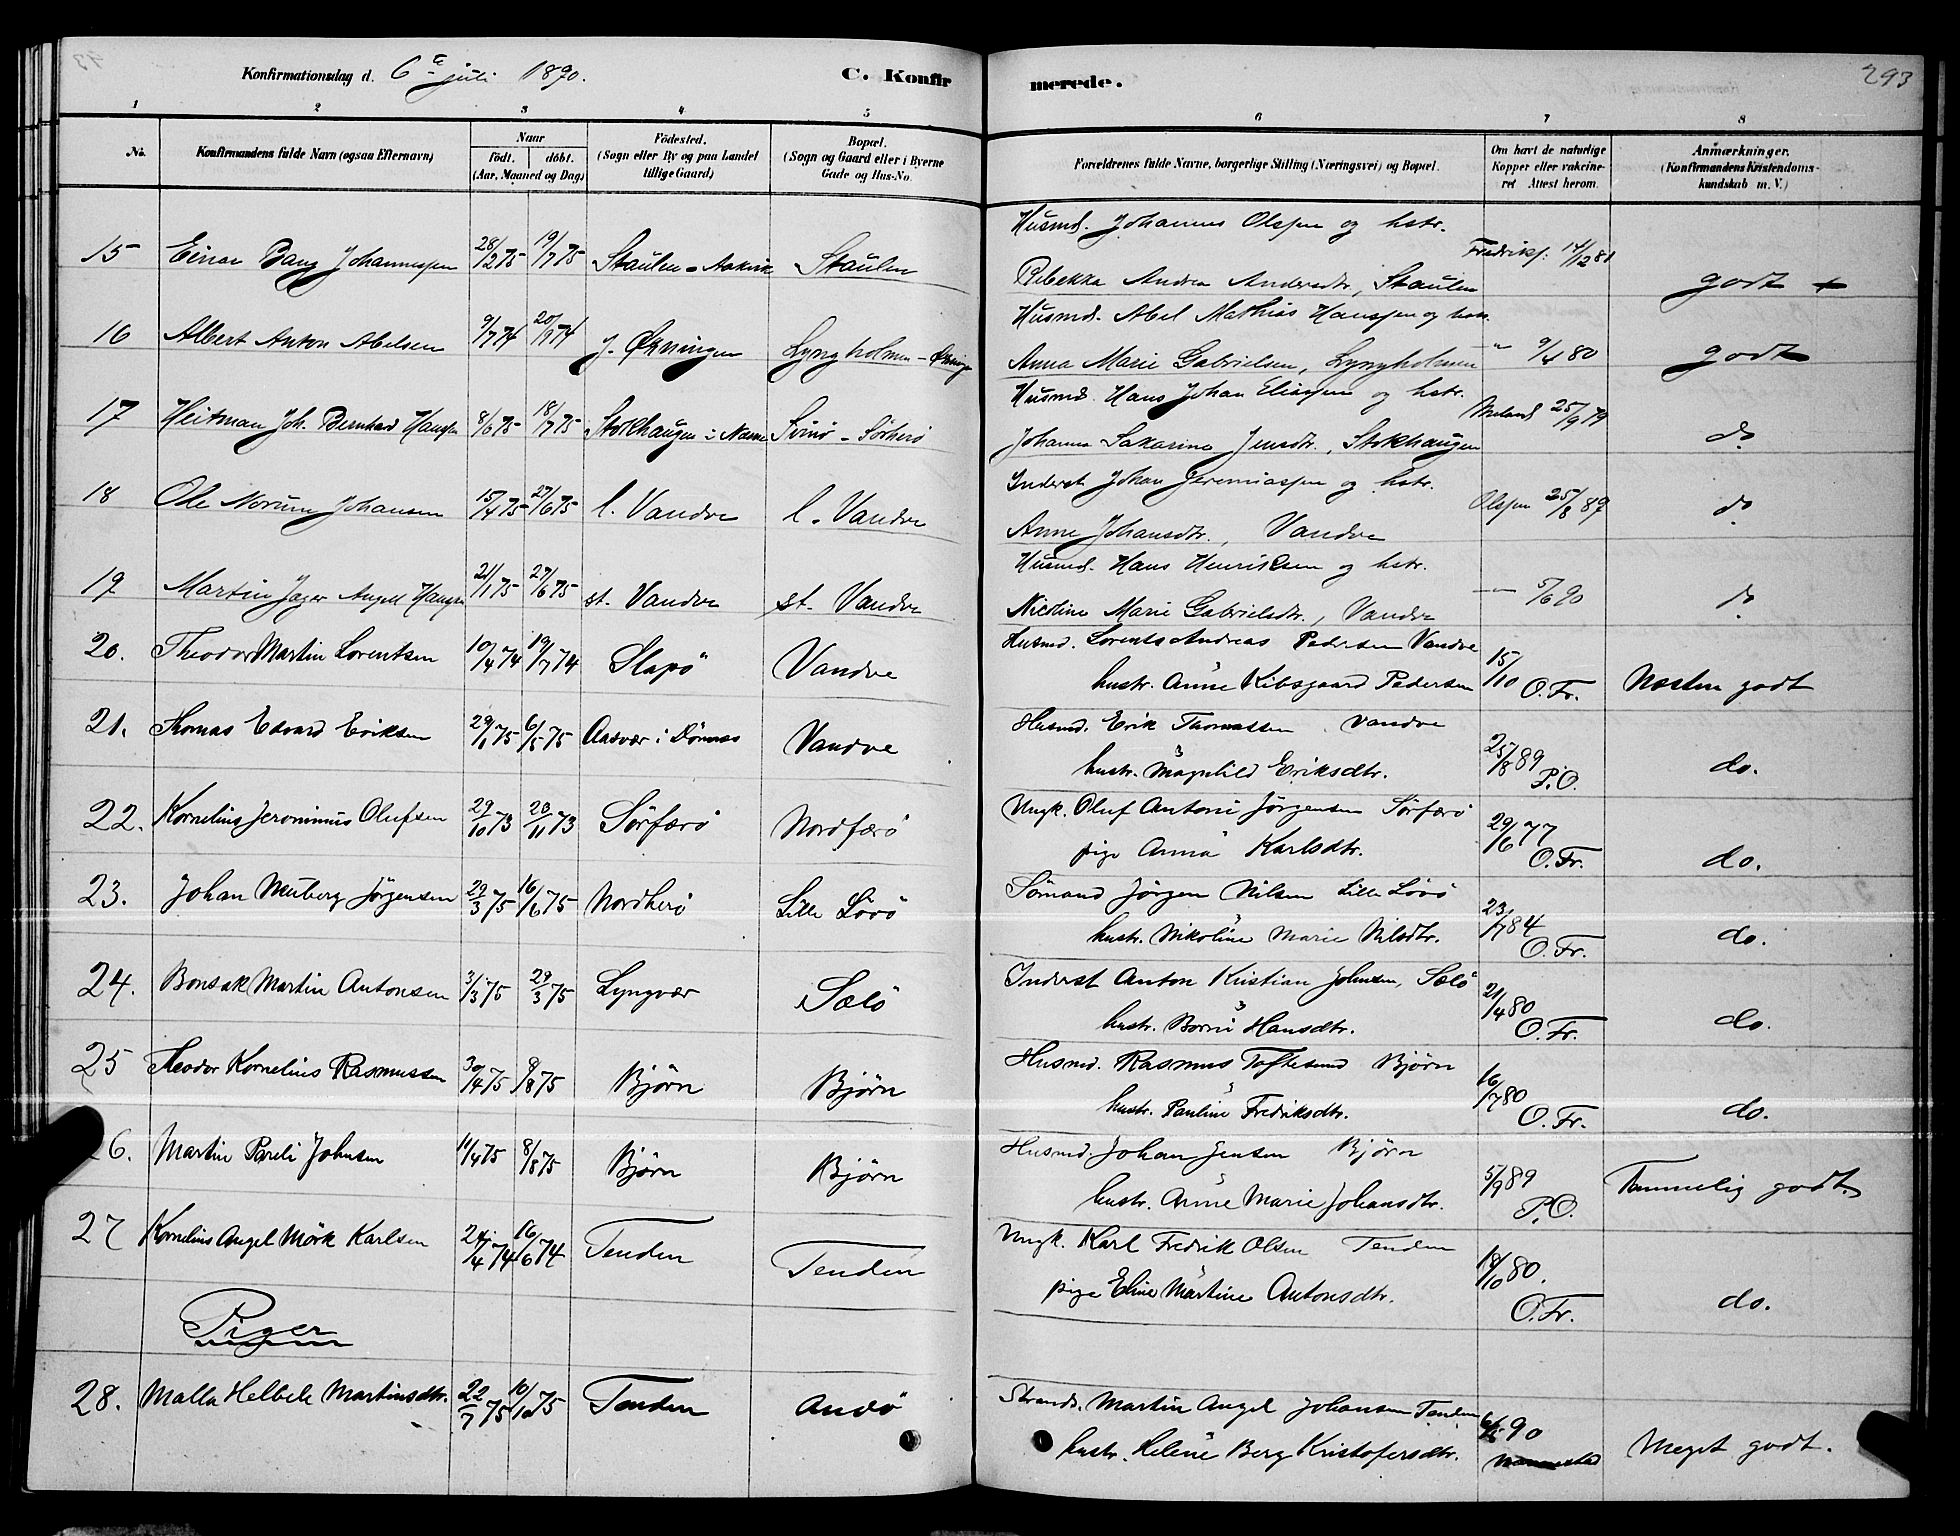 Konfirmationsdag d. 6te juli 1890. C. Konfirmerede. 293
1 2 3 4 5 6 7 8
No. Konfirmandens fulde Navn (ogsaa Efternavn)
Naar
født. døbt.
(Aar, Maaned og Dag)
Fødested.
(Sogn eller By og paa Landet
tillige Gaard)
Bopæl.
(Sogn og Gaard eller i Byerne
Gade og Hus-No.
Forældrenes fulde Navne, borgerlige Stilling (Næringsvei) og Bopæl.
Om havt de naturlige
Kopper eller vakcine-
ret Attest herom.
Anmærkninger.
(Konfirmandens Kristendoms-
kundskab m. V.)
Husmd. Johannes Olsen og hstr.
15 Einar Bang Johannessen 28/2 75 19/7 75 Staulen - Aakvik Staulen Fredriks. 14/12 81
Rebekka Andrea Andersdtr., Staulen godt +
Husmd. Abel Mathias Hanssen og hstr.
16 Albert Anton Abelsen 9/7 74 20/9 74 J. Øxningen Lyngholmen - Øxning
Anna Marie Gabrielsen, Lyngholmen -"- 9/4 80 godt
Husmd. Hans Johan Eliassen og hstr.
17 Heitman Joh. Bernhard Hanssen 8/6 75 18/7 75 Stokhaugen i Næsne Svinø - Sørherø Meland 25/9 79
Johanna Sakarina Jensdtr., Stokhaugen do
Inderst Johan Jeremiassen og hstr.
18 Ole Norum Johansen 15/4 75 27/6 75 l. Vandve l. Vandve Olssen 25/8 89
Anne Johansdtr., Vandve do
Husmd. Hans Henriksen og hstr.
19 Martin Jager Angel Hansen 21/1 75 27/6 75 st. Vandve st. Vandve -"- 5/6 90
Nicoline Marie Gabrielsdtr., Vandve do
20. Theodor Martin Lorentsen 10/4 74 19/7 74 Slapø Vandve Husmd. Lorents Andreas Pedersen Vandve
hustr. Anne Kibsgaard Pedersen 15/10 O.Fr. Næsten godt
21. Thomas Edvard Eriksen 29/1 75 6/5 75 Aasvær i Dønnæs Vandve Husmd. Erik Thomassen Vandve
hustr. Magnhild Eriksdtr. 25/8 89 P.O. do.
22. Kornelius Jeronimus Olufsen 29/10 73 20/11 73 Sørfærø Nordfærø Ungk. Oluf Antoni Jørgensen Sørfærø
pige Anna Karlsdtr. 29/6 77 O.Fr. do.
23. Johan Meiberg Jørgensen 29/3 75 16/6 75 Nordherø Lille Løvø Sømand Jørgen Nilsen Lille Løvø
hustr. Nikoline Marie Nilsdtr. 23/7 84 O.Fr. do.
24. Bonsak Martin Antonsen 3/3 75 29/3 75 Lyngvær Sælø Inderst Anton Kristian Johnsen, Sælø
hustr. Borni Hansdtr. 21/4 80 O.Fr. do.
25 Theodor Kornelius Rasmussen 30/4 75 8/8 75 Bjørn Bjørn Husmd. Rasmus Toftesund Bjørn
hustr. Pauline Fredriksdtr. 16/7 80 O.Fr. do.
26. Martin Pareli Johnsen 11/4 75 8/8 75 Bjørn Bjørn Husmd. Johan Jensen Bjørn
hustr. Anne Marie Johansdtr. 5/9 89 P.O. Temmelig godt.
27 Kornelius Angel Mørk Karlsen 24/4 74 16/6 74 Tenden Tenden Ungk. Karl Fredrik Olsen Tenden
pige Eline Martine Antonsdtr. 18/10 80. O.Fr. do.
Piger
28. Malla Helbek Martinsdtr. 22/7 75 10/10 75 Tenden Andø Strands. Martin Angel Johansen Tenden
hustr. Helene Berg Kristofersdtr. 90 Meget godt.